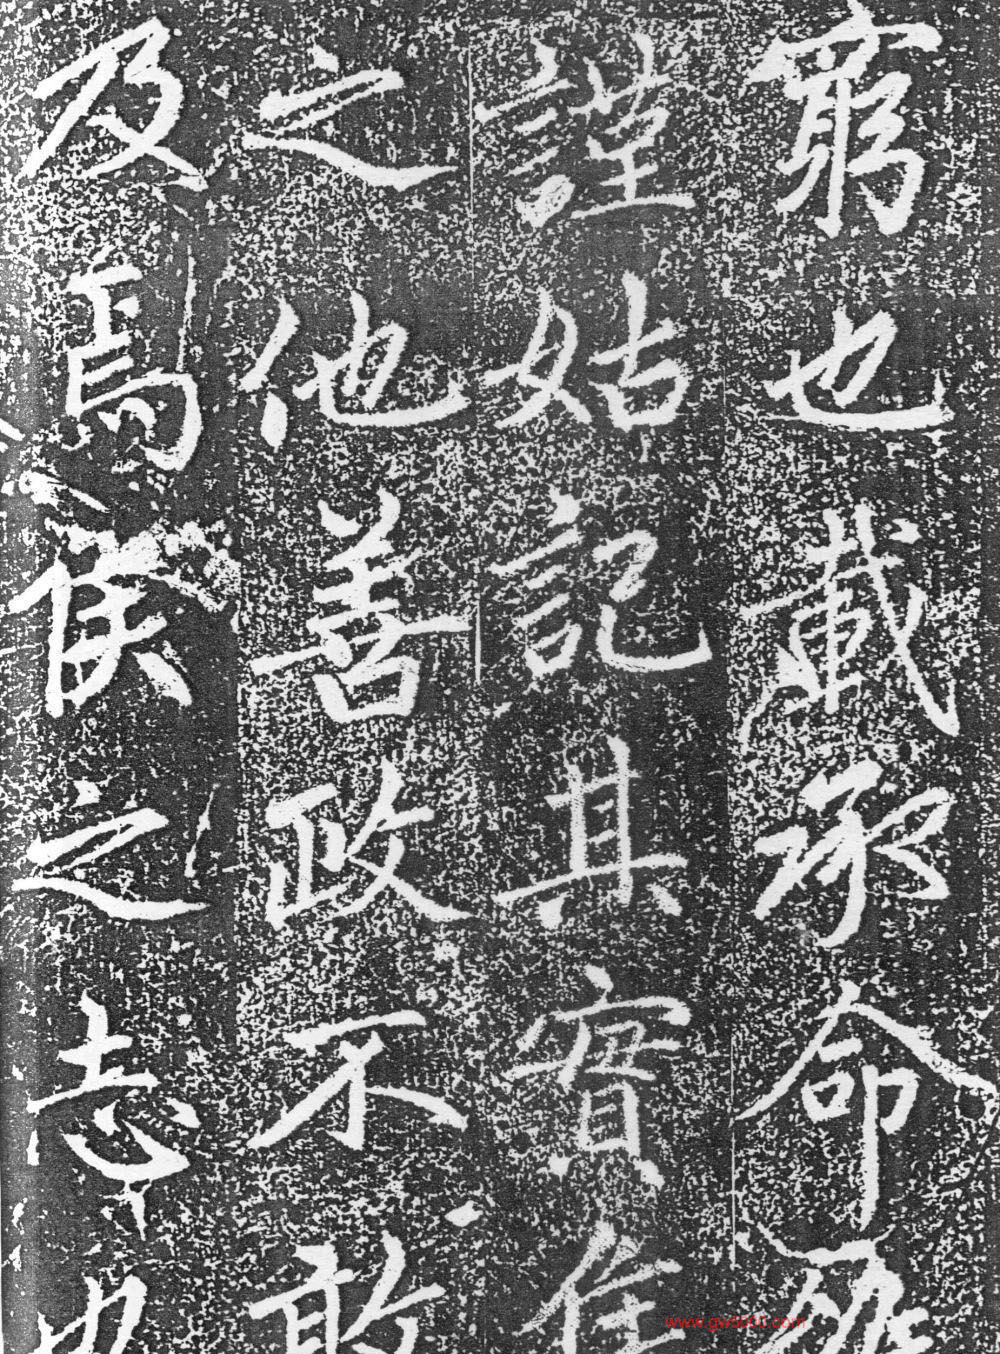 窮也載承命
謹姑記其實
之他善政不敢
及焉侯之志也
www.gw5000.com